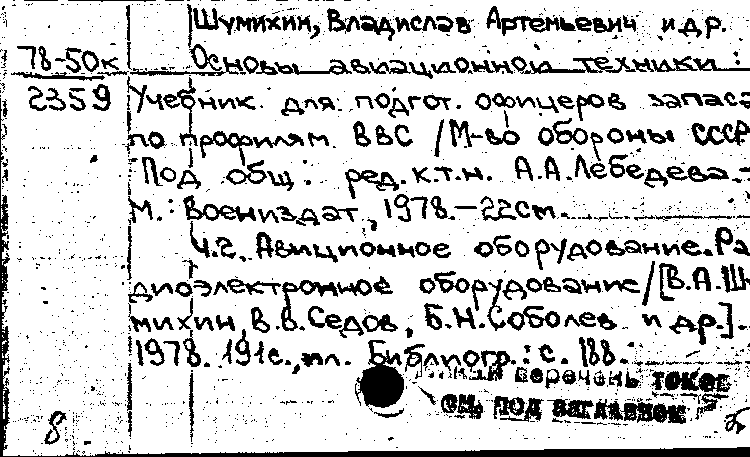 Шумихин, Владислав Артемьевич и др.
78-50к Основы авиационной техники:
2359 Учебник для подгот. офицеров запаса
по профилям ВВС / М-во обороны СССР
Под общ. ред. к.т.н. А.А.Лебедева.-
М.: Воениздат, 1978.-22см.
Ч.2. Авиционное оборудование. Ра
диоэлектронное оборудование/[В.А.Шу
михин, В.В.Седов, Б.Н.Соболев и др.].
1978. 191с., ил. Библиогр.: с. 188.
перечень томов
см. под заглавием
8 Б